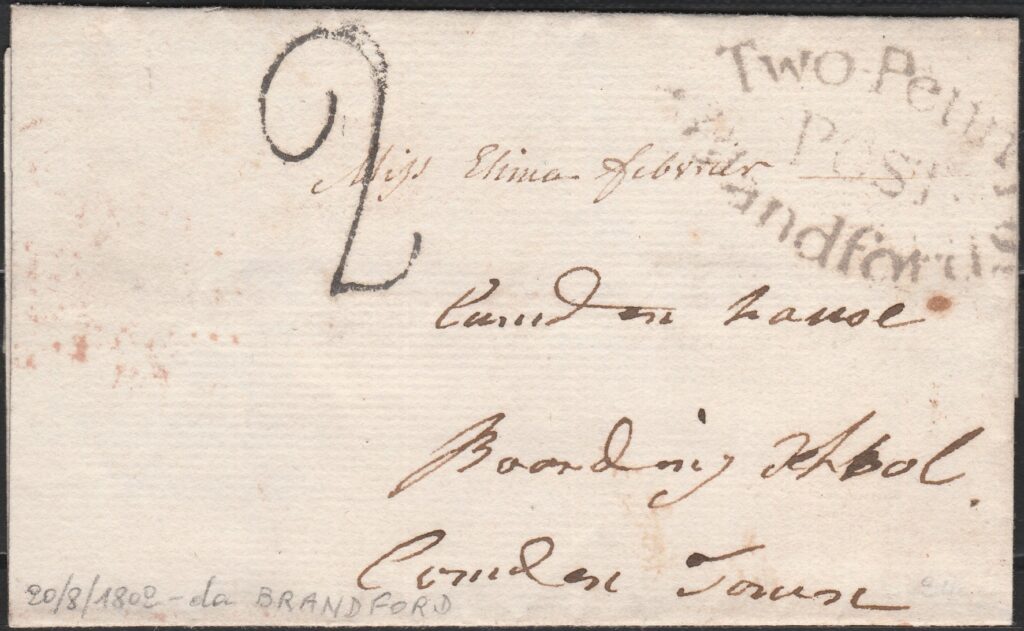 2
Two Penny
Post
andford
Miss Elima fevrier
Camden house
Boarding School.
Camden Town
20/8/1802 - da BRANDFORD